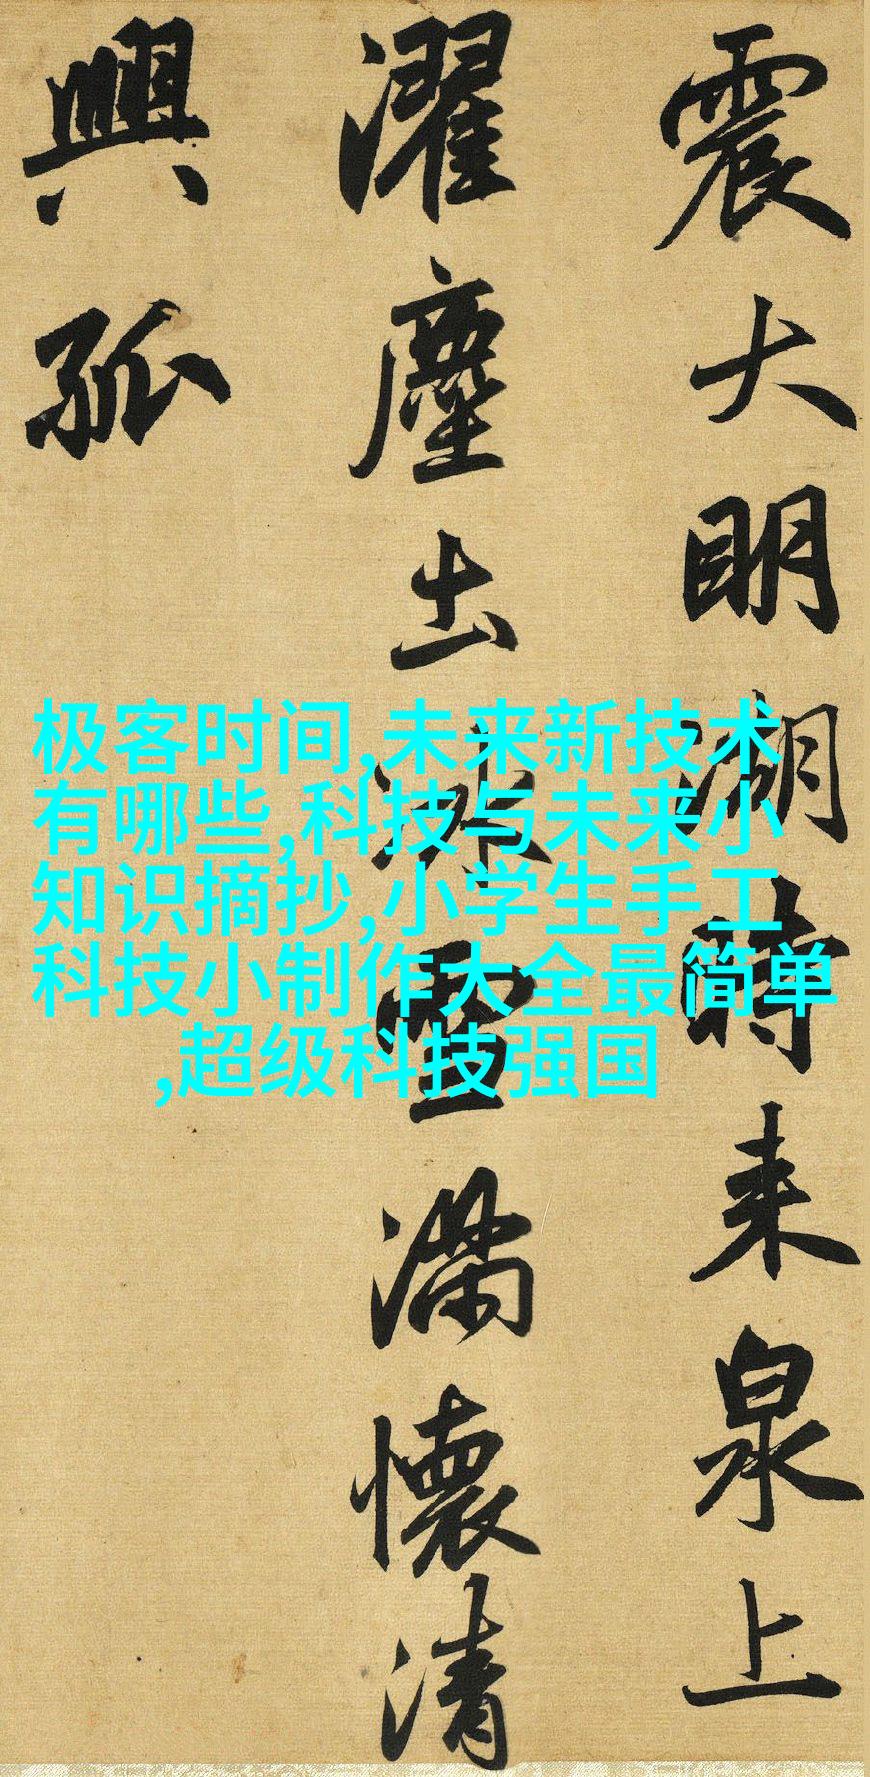 震大明湖時来泉上
濯塵出冰雪滿懷清
興孤
极客时间,未来新技术
有哪些,科技与未来小
知识摘抄,小学生手工
科技小制作大全最简单
,超级科技强国